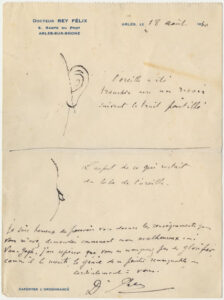 DOCTEUR REY FÉLIX
6, RAMPE DU PONT
ARLES-SUR-RHÔNE
ARLES, LE 18 août 30
L'oreille a été
tranchée avec un rasoir
suivant le trait pointillé
L'aspect de ce qui restait
du lobe de l'oreille.
Je suis heureux de pouvoir vous donner les renseignements que
vous m'avez demandés concernant mon malheureux ami
Van Gogh. J'ose espérer que vous ne manquerez pas de glorifier
comme il le mérite le génie de ce peintre remarquable
cordialement à vous.
Dr Rey
EXPERTISE L'ORDONNANCE